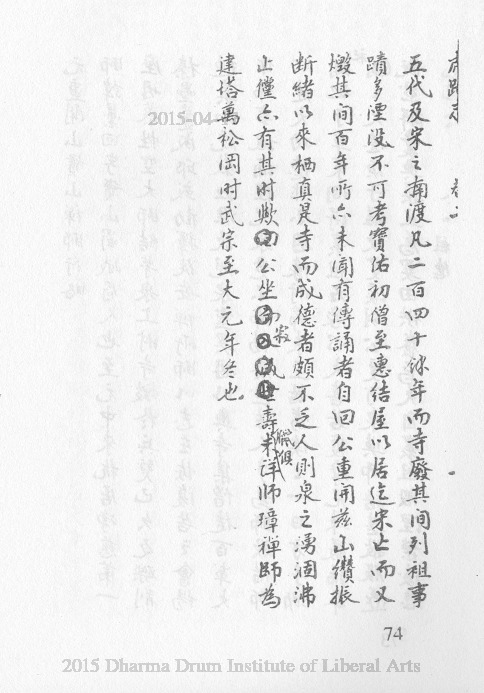 五代及宋之南渡凡二百四十餘年而寺廢其間列祖事
蹟多湮没不可考寶佑初僧至惠結屋以居迄宋亡而又
燬其間百年所亦未聞有傳誦者自回公重開茲山纘振
斷緒以來栖真是寺而成德者頗不乏人則泉之湧涸沸
止儻亦有其時歟公坐寂壽臘俱未詳師璋禪師為
建塔萬松岡时武宗至大元年冬也
74
2015-04-
2015 Dharma Drum Institute of Liberal Arts